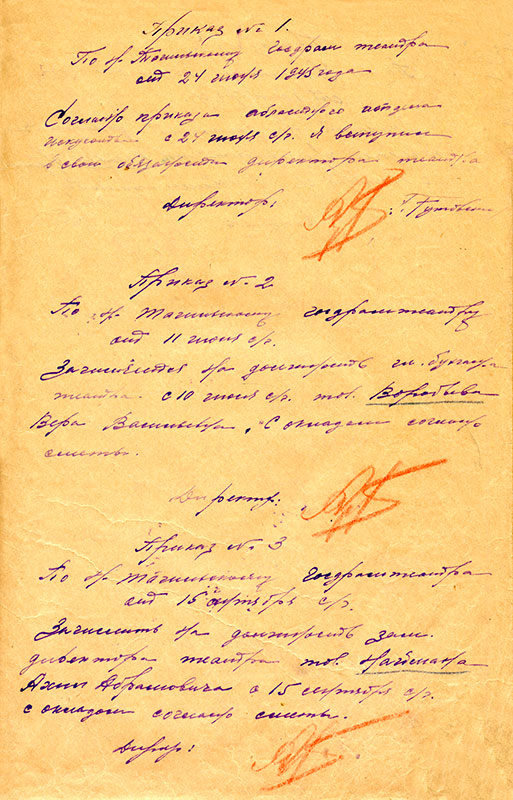 Приказ № 1.
По Н. Тагильскому госдрам театра
от 24 июня 1945 года
Согласно приказа областного отдела
искусств с 24 июня с/г. Я вступил
в свои обязанности директора театра
Директор:
Приказ № 2
По Н. Тагильскому госдрамтеатру
от 11 июля с/г.
Зачисляется на должность гл. бухгалтера
театра с 10 июля с/г. тов. Воробьева
Вера Васильевна с окладом согласно
сметы.
Директор:
Приказ № 3
По Н. Тагильскому госдрамтеатра
от 15 сентября с/г.
Зачислить на должность зам.
директора театра тов. Наймана
Абрамовича с 15 сентября с/г.
с окладом согласно сметы.